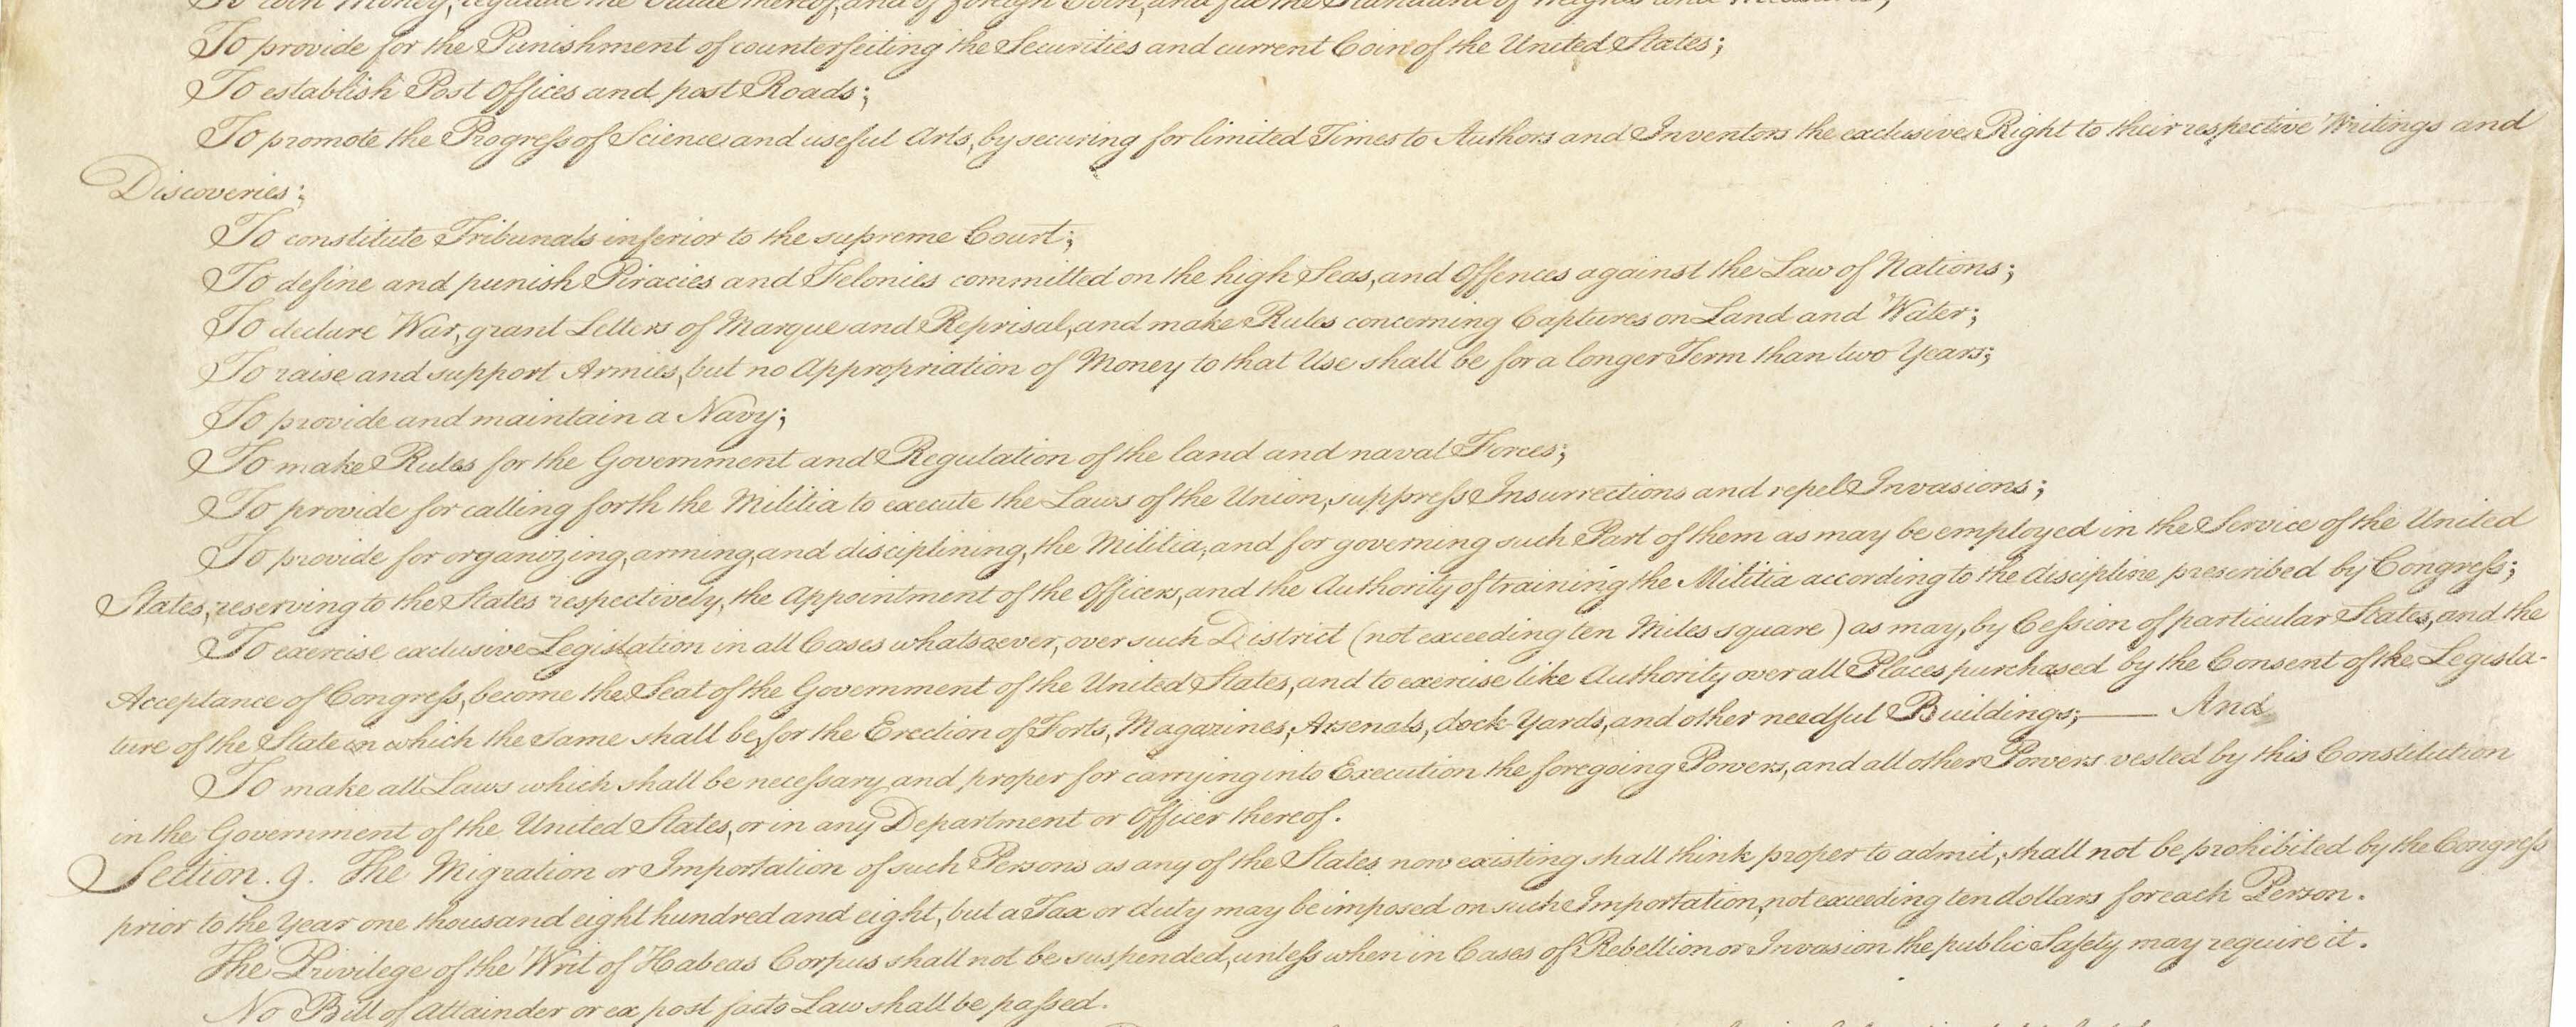 To coin Money, regulate the Value thereof, and of foreign Coin, and fix the Standard of Weights and Measures;
To provide for the Punishment of counterfeiting the Securities and current Coin of the United States;
To establish Post Offices and post Roads;
To promote the Progreſs of Science and useful Arts, by securing for limited Times to Authors and Inventors the exclusive Right to their respective Writings and
Discoveries;
To constitute Tribunals inferior to the supreme Court;
To define and punish Piracies and Felonies committed on the high Seas, and Offences against the Law of Nations;
To declare War, grant Letters of Marque and Reprisal, and make Rules concerning Captures on Land and Water;
To raise and support Armies, but no Appropriation of Money to that Use shall be for a longer Term than two Years;
To provide and maintain a Navy;
To make Rules for the Government and Regulation of the land and naval Forces;
To provide for calling forth the Militia to execute the Laws of the Union, suppreſs Insurrections and repel Invasions;
To provide for organizing, arming, and disciplining, the Militia, and for governing such Part of them as may be employed in the Service of the United
States, reserving to the States respectively, the Appointment of the Officers, and the Authority of training the Militia according to the discipline prescribed by Congreſs;
To exercise exclusive Legislation in all Cases whatsoever, over such District (not exceeding ten Miles square) as may, by Ceſsion of particular States, and the
Acceptance of Congreſs, become the Seat of the Government of the United States, and to exercise like Authority over all Places purchased by the Consent of the Legisla-
ture of the State in which the Same shall be, for the Erection of Forts, Magazines, Arsenals, dock-Yards, and other needful Buildings;—— And
To make all Laws which shall be neceſsary and proper for carrying into Execution the foregoing Powers, and all other Powers vested by this Constitution
in the Government of the United States, or in any Department or Officer thereof.
Section. 9. The Migration or Importation of such Persons as any of the States now existing shall think proper to admit, shall not be prohibited by the Congreſs
prior to the Year one thousand eight hundred and eight, but a Tax or duty may be imposed on such Importation, not exceeding ten dollars for each Person.
The Privilege of the Writ of Habeas Corpus shall not be suspended, unleſs when in Cases of Rebellion or Invasion the public Safety may require it.
No Bill of Attainder or ex post facto Law shall be paſsed.